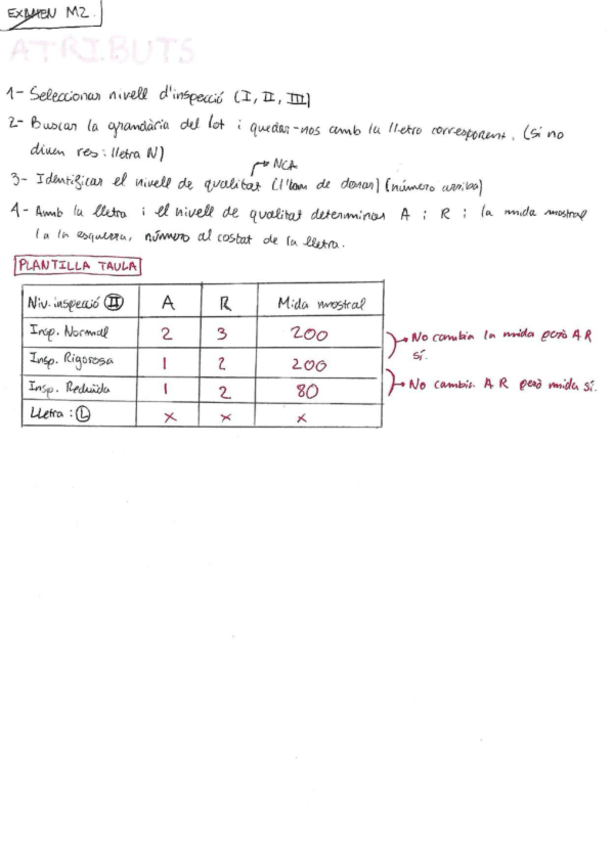 EXAMEN M2.
ATRIBUTS
1- Seleccionar nivell d'inspecció (I, II, III)
2- Buscar la grandària del lot i quedar-nos amb la lletra corresponent. (Si no
diuen res: lletra N)
NCA
3- Identificar el nivell de qualitat (l'han de donar) (número arriba)
4- Amb la lletra i el nivell de qualitat determinar A i R i la mida mostral
(a la esquerra, número al costat de la lletra.
PLANTILLA TAULA
Niv. inspecció II A R Mida mostral
Insp. Normal 2 3 200
No cambia la mida però A R
sí.
Insp. Rigorosa 1 2 200
Insp. Reduïda 1 2 80
No cambia A R però mida sí.
Lletra: L x x x